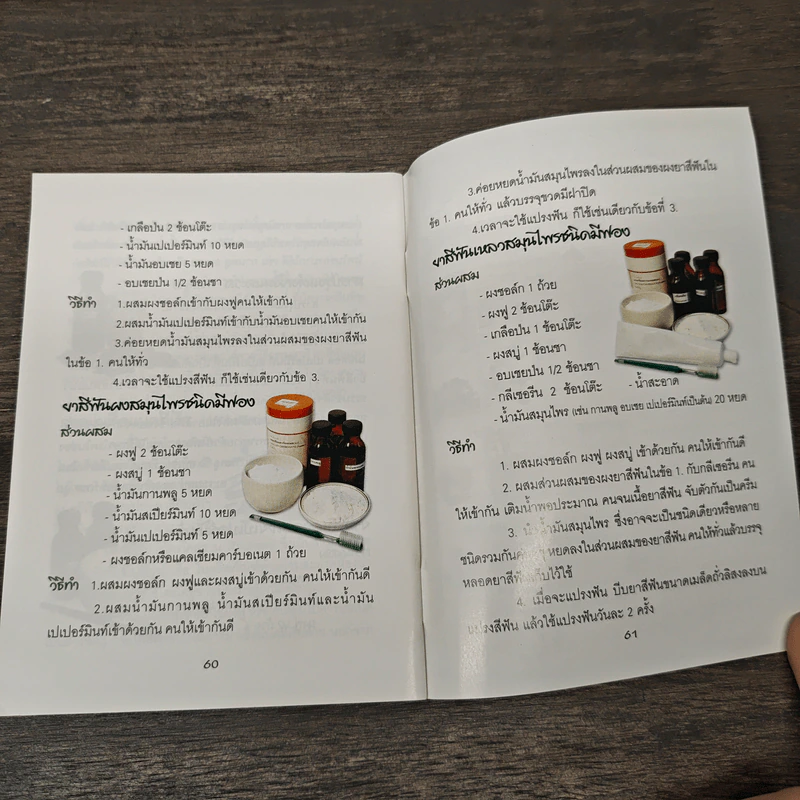 - เกลือป่น 2 ช้อนโต๊ะ
- น้ำมันเปเปอร์มินท์ 10 หยด
- น้ำมันอบเชย 5 หยด
- อบเชยป่น 1/2 ช้อนชา
วิธีทำ 1.ผสมผงชอล์กเข้ากับผงฟูคนให้เข้ากัน
2.ผสมน้ำมันเปเปอร์มินท์เข้ากับน้ำมันอบเชยคนให้เข้ากัน
3.ค่อยหยดน้ำมันสมุนไพรลงในส่วนผสมของผงยาสีฟัน
ในข้อ 1. คนให้ทั่ว
4.เวลาจะใช้แปรงสีฟัน ก็ใช้เช่นเดียวกับข้อ 3.
ยาสีฟันผงสมุนไพรชนิดมีฟอง
ส่วนผสม
- ผงฟู 2 ช้อนโต๊ะ
- ผงสบู่ 1 ช้อนชา
- น้ำมันกานพลู 5 หยด
- น้ำมันสเปียร์มินท์ 10 หยด
- น้ำมันเปเปอร์มินท์ 5 หยด
- ผงชอล์กหรือแคลเซียมคาร์บอเนต 1 ถ้วย
วิธีทำ 1.ผสมผงชอล์ก ผงฟูและผงสบู่เข้าด้วยกัน คนให้เข้ากันดี
2.ผสมน้ำมันกานพลู น้ำมันสเปียร์มินท์และน้ำมัน
เปเปอร์มินท์เข้าด้วยกัน คนให้เข้ากันดี
60
3.ค่อยหยดน้ำมันสมุนไพรลงในส่วนผสมของผงยาสีฟันใน
ข้อ 1. คนให้ทั่ว แล้วบรรจุขวดมีฝาปิด
4.เวลาจะใช้แปรงฟัน ก็ใช้เช่นเดียวกับข้อที่ 3.
ยาสีฟันเหลวสมุนไพรชนิดมีฟอง
ส่วนผสม
- ผงชอล์ก 1 ถ้วย
- ผงฟู 2 ช้อนโต๊ะ
- เกลือป่น 1 ช้อนโต๊ะ
- ผงสบู่ 1 ช้อนชา
- อบเชยป่น 1/2 ช้อนชา
- กลีเซอรีน 2 ช้อนโต๊ะ - น้ำสะอาด
- น้ำมันสมุนไพร (เช่น กานพลู อบเชย เปเปอร์มินท์เป็นต้น) 20 หยด
วิธีทำ
1. ผสมผงชอล์ก ผงฟู ผงสบู่ เข้าด้วยกัน คนให้เข้ากันดี
2. ผสมส่วนผสมของผงยาสีฟันในข้อ 1. กับกลีเซอรีน คน
ให้เข้ากัน เติมน้ำพอประมาณ คนจนเนื้อยาสีฟัน จับตัวกันเป็นครีม
3. นำน้ำมันสมุนไพร ซึ่งอาจจะเป็นชนิดเดียวหรือหลาย
ชนิดรวมกันก็ได้ หยดลงในส่วนผสมของยาสีฟัน คนให้ทั่วแล้วบรรจุ
หลอดยาสีฟันเก็บไว้ใช้
4. เมื่อจะแปรงฟัน บีบยาสีฟันขนาดเมล็ดถั่วลิสงลงบน
แปรงสีฟัน แล้วใช้แปรงฟันวันละ 2 ครั้ง
61